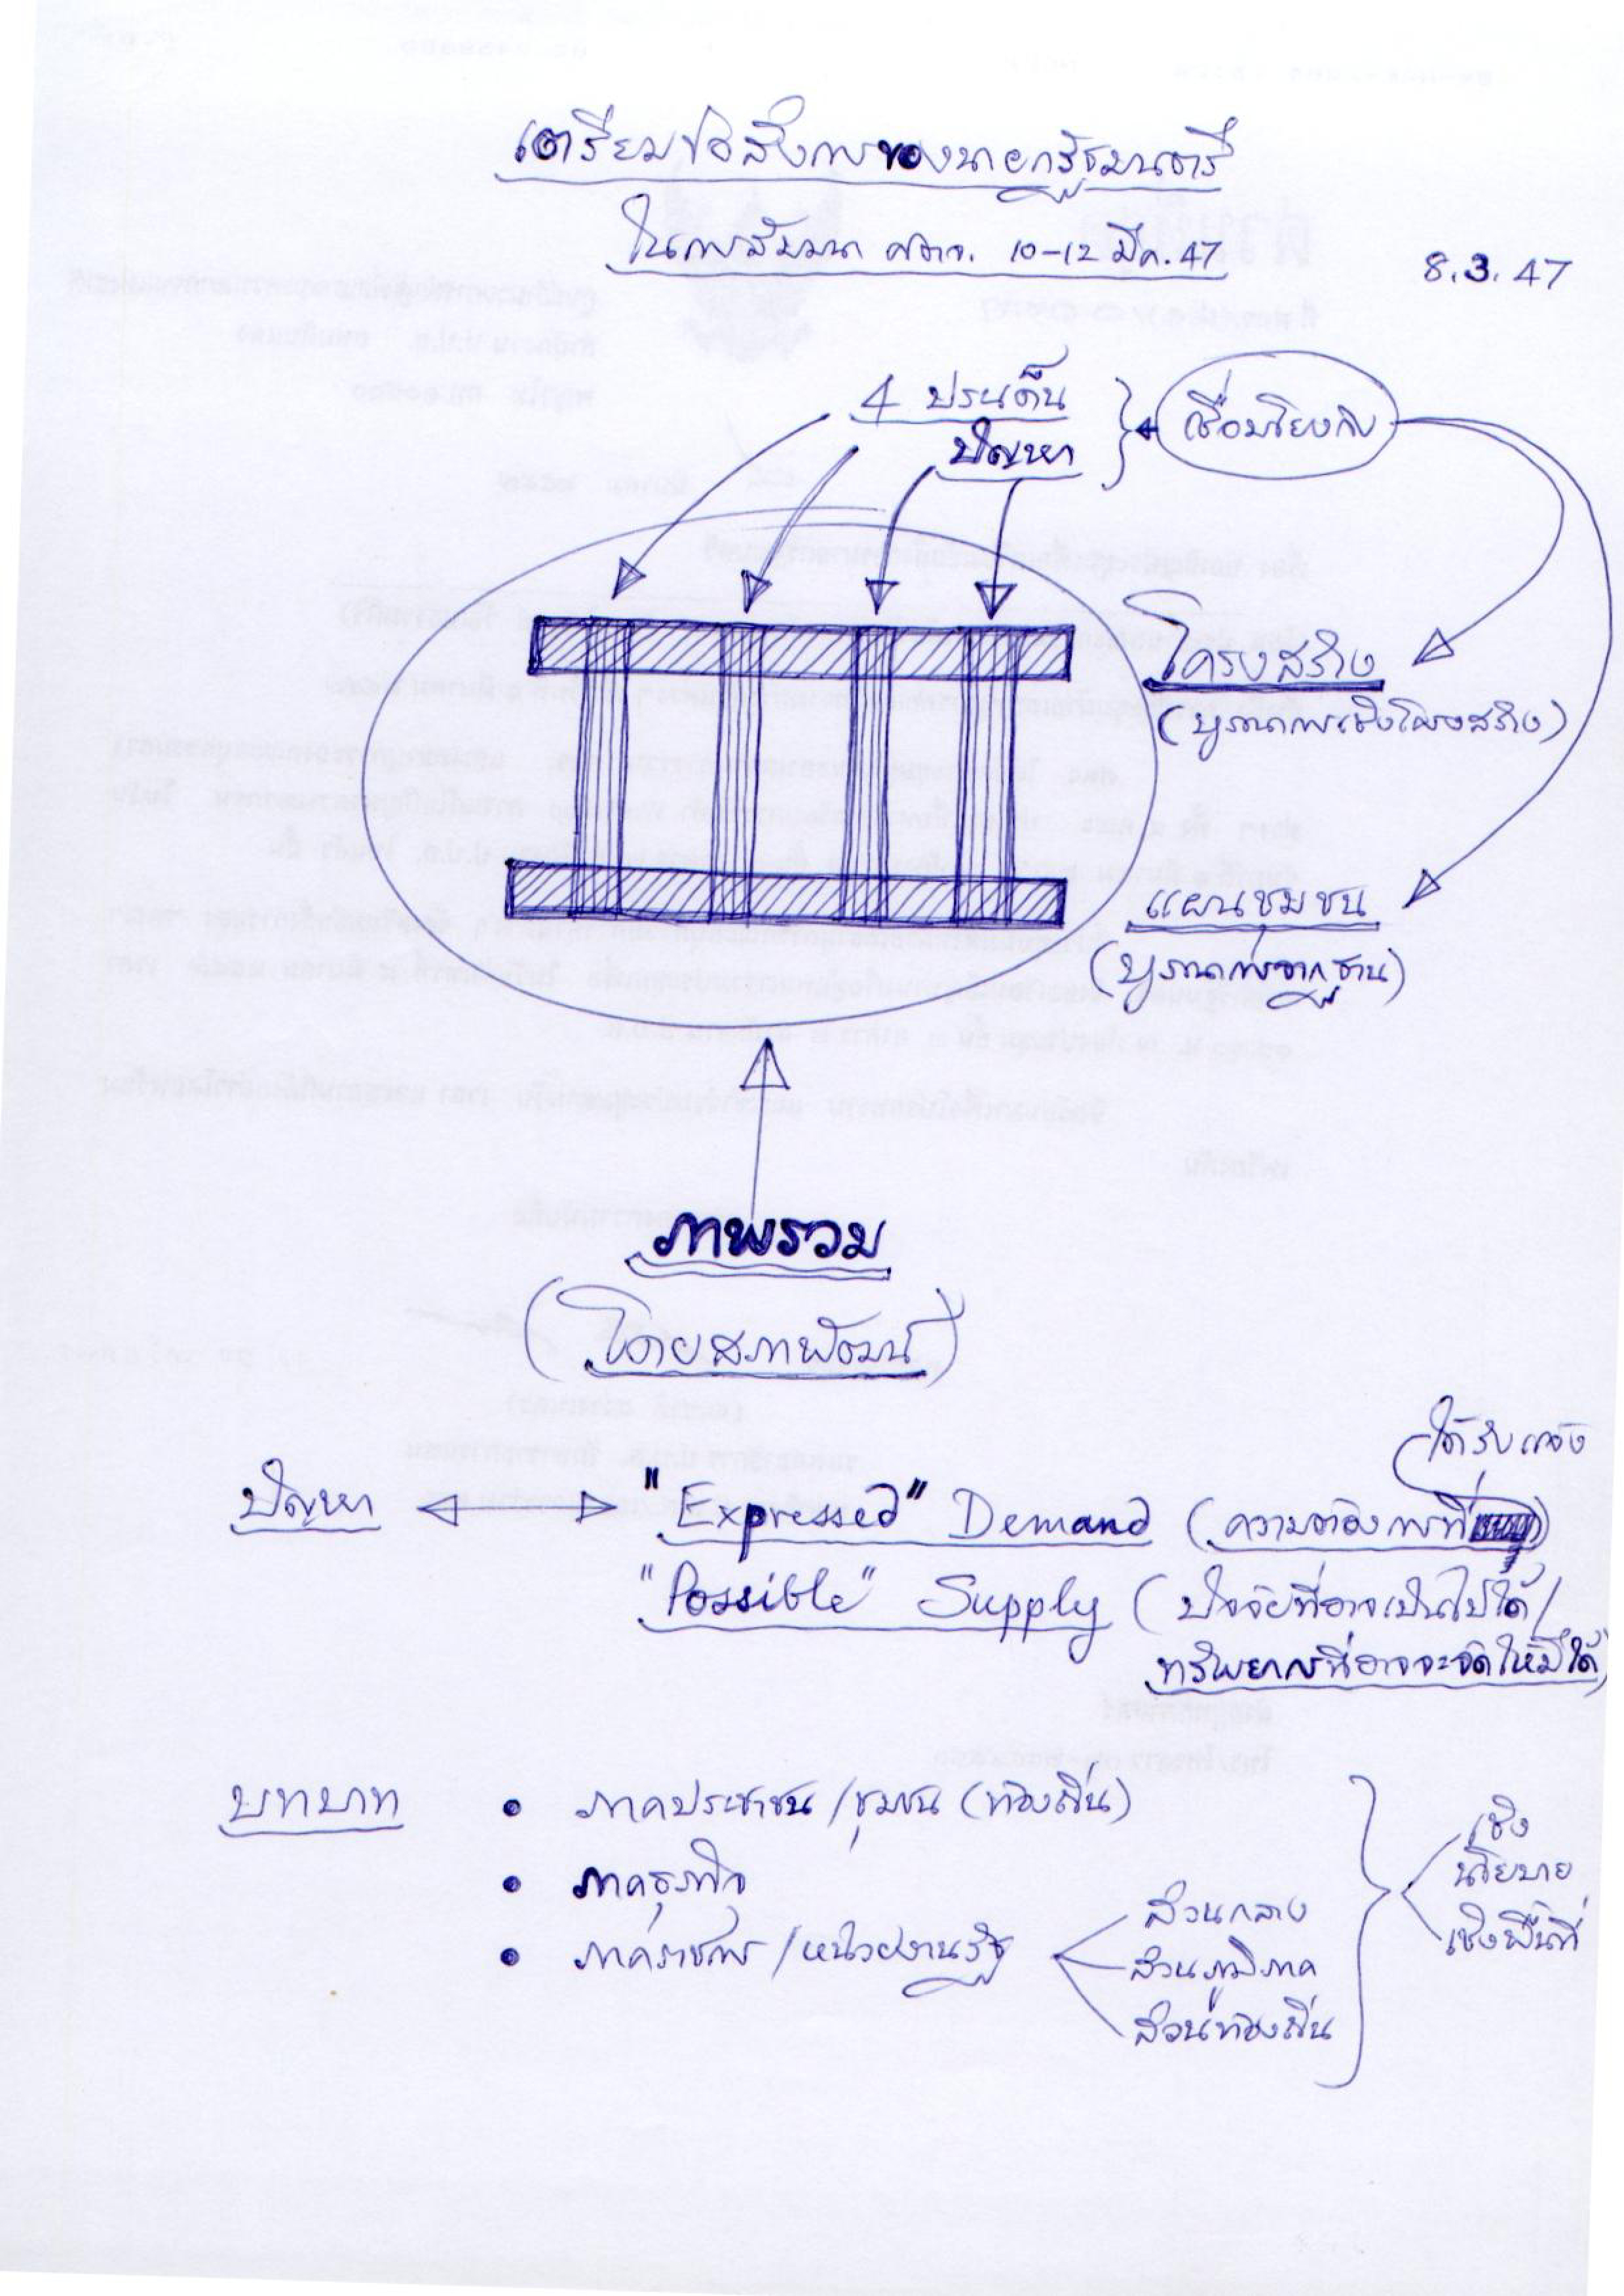 เตรียมข้อสั่งการของนายกรัฐมนตรี
ในการสัมมนา ศตจ. 10-12 มีค. 47
8.3.47
4 ประเด็น
ปัญหา
เชื่อมโยงกับ
โครงสร้าง
(บูรณาการเชิงโครงสร้าง)
แผนชุมชน
(บูรณาการจากฐาน)
ภาพรวม
(โดยสภาพัฒน์)
ได้รับแจ้ง
ปัญหา "Expressed" Demand (ความต้องการที่)
"Possible" Supply (ปัจจัยที่อาจเป็นไปได้/
ทรัพยากรที่อาจจะจัดให้มีได้)
บทบาท • ภาคประชาชน/ชุมชน (ท้องถิ่น)
• ภาคธุรกิจ
• ภาคราชการ/หน่วยงานรัฐ
ส่วนกลาง
ส่วนภูมิภาค
ส่วนท้องถิ่น
เชิง
นโยบาย
เชิงพื้นที่